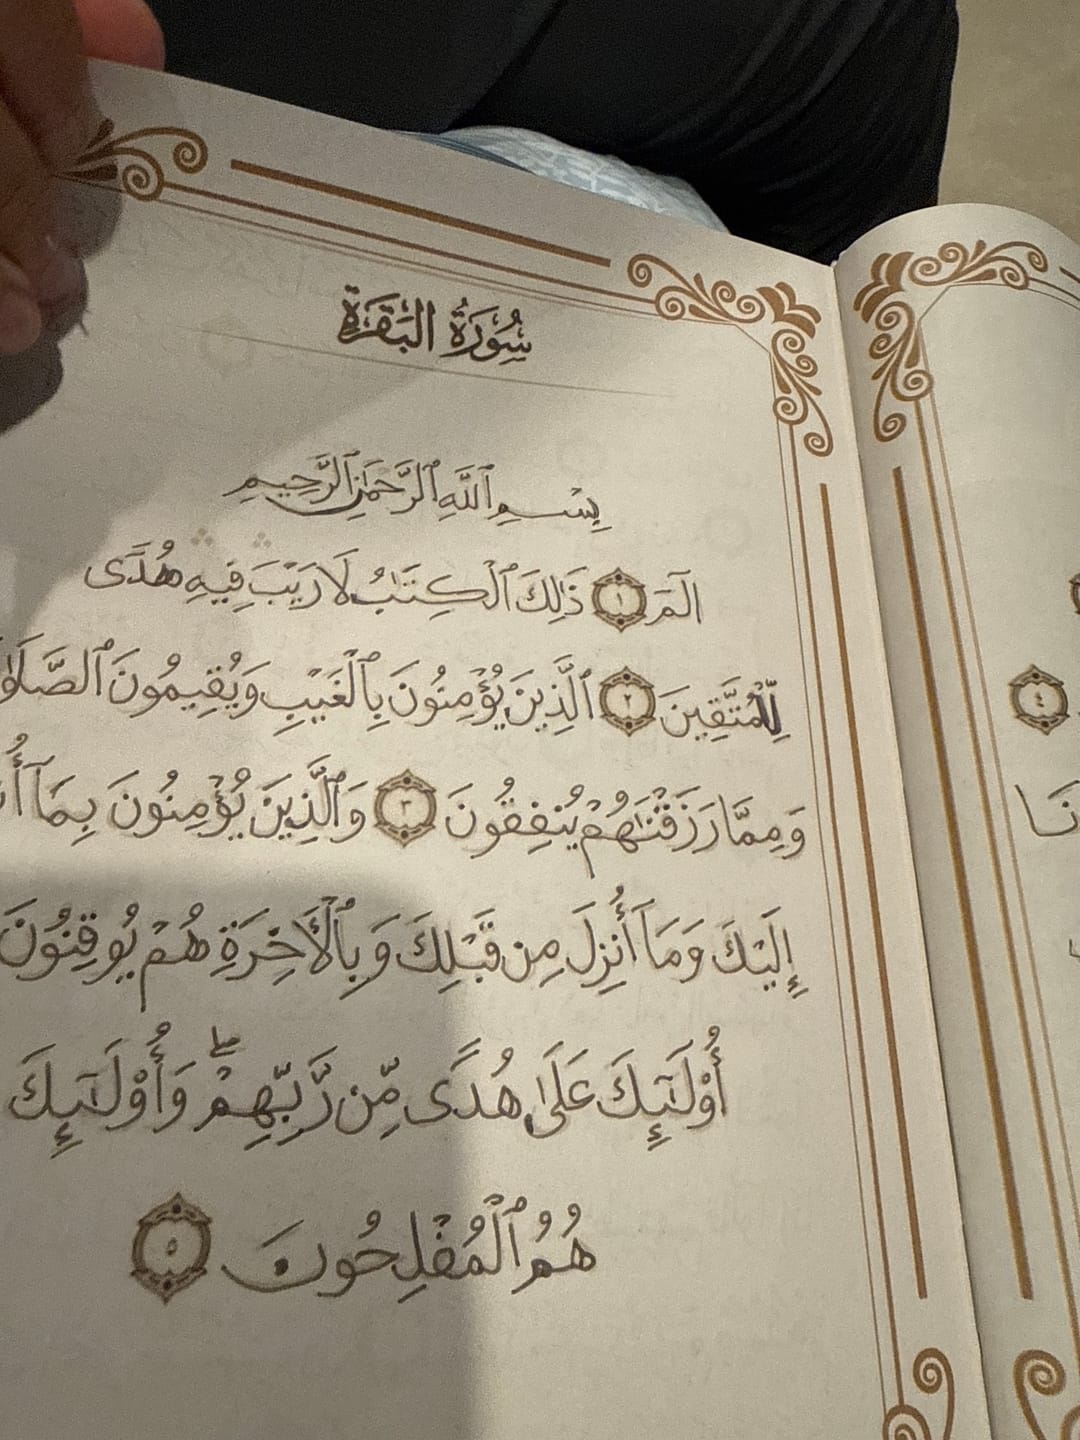 سُورَةُ البَقَرَةِ
بِسْمِ ٱللَّهِ ٱلرَّحْمَٰنِ ٱلرَّحِيمِ
الٓمٓ ١ ذَٰلِكَ ٱلْكِتَٰبُ لَا رَيْبَ فِيهِ هُدًى
لِّلْمُتَّقِينَ ٢ ٱلَّذِينَ يُؤْمِنُونَ بِٱلْغَيْبِ وَيُقِيمُونَ
وَمِمَّا رَزَقْنَٰهُمْ يُنفِقُونَ ٣ وَٱلَّذِينَ يُؤْمِنُونَ بِمَآ
إِلَيْكَ وَمَآ أُنزِلَ مِن قَبْلِكَ وَبِٱلْأَخِرَةِ هُمْ يُوقِنُونَ
أُوْلَٰٓئِكَ عَلَىٰ هُدًى مِّن رَّبِّهِمْۖ وَأُوْلَٰٓئِكَ
هُمُ ٱلْمُفْلِحُونَ ٥
٤
نَا